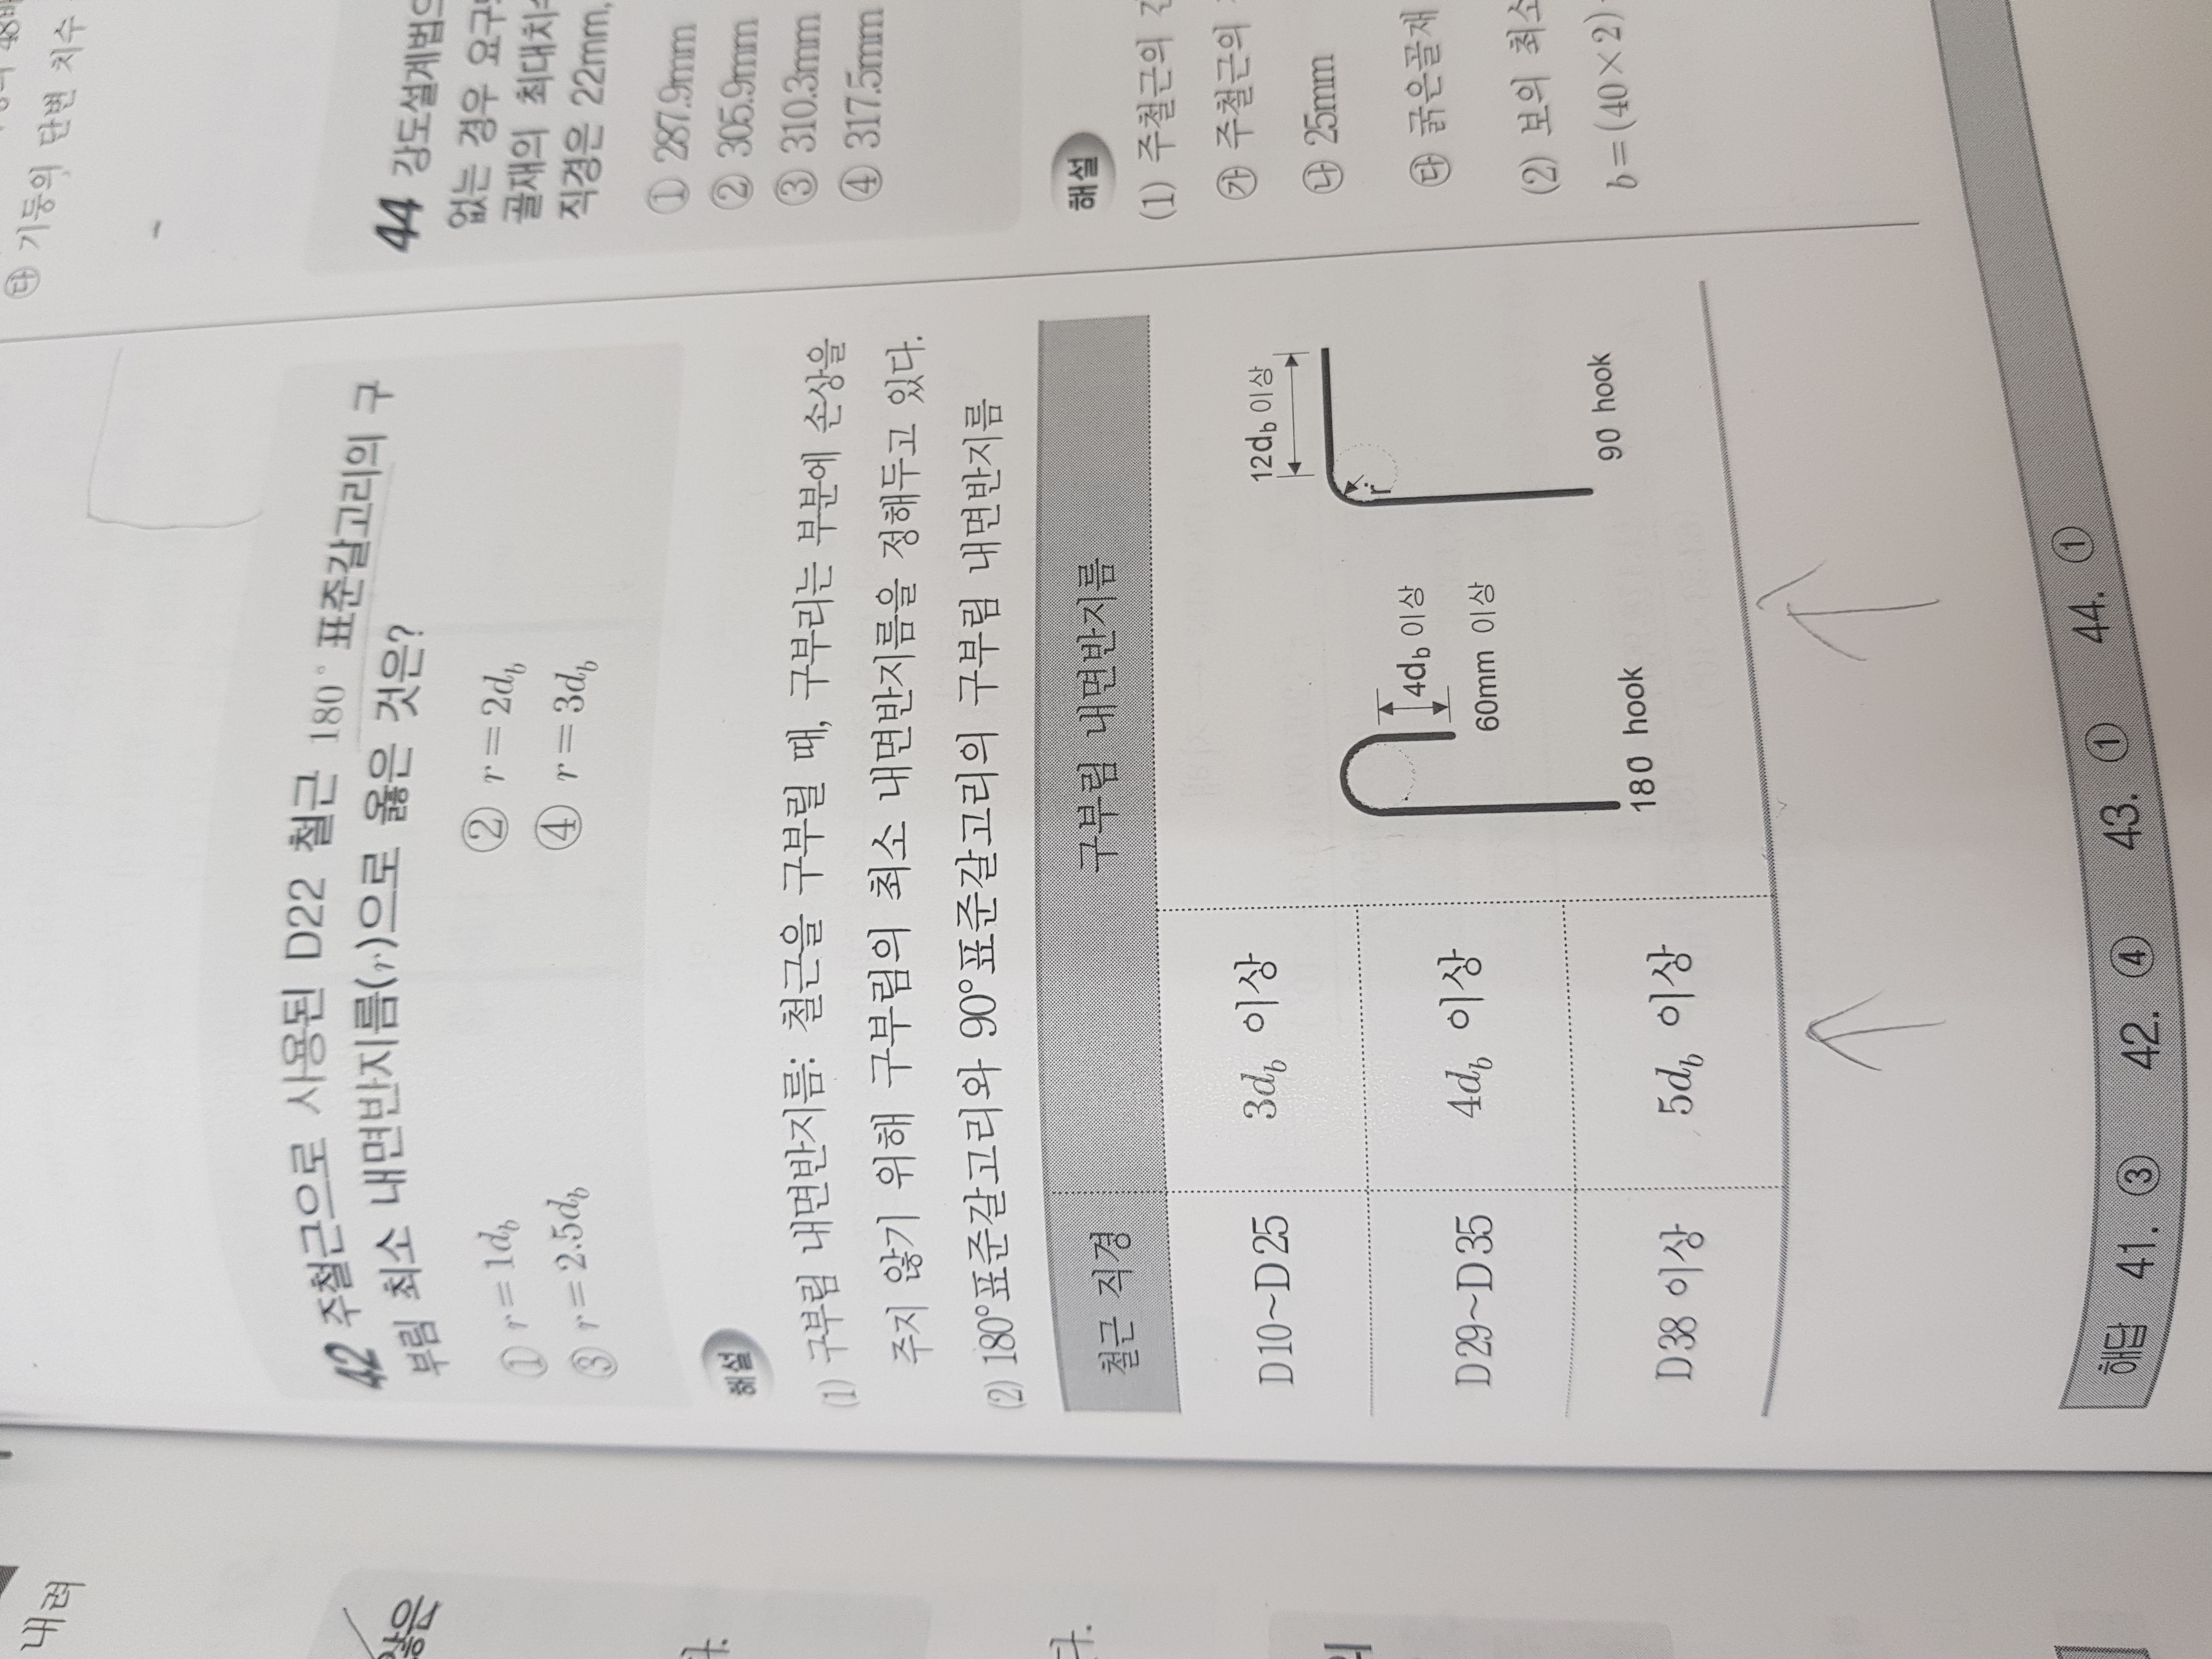 내력
않은
다.
42 주철근으로 사용된 D22 철근 180° 표준갈고리의 구
부림 최소 내면반지름(r)으로 옳은 것은?
① r=1d_b ② r=2d_b
③ r=2.5d_b ④ r=3d_b
해설
(1) 구부림 내면반지름: 철근을 구부릴 때, 구부리는 부분에 손상을
주지 않기 위해 구부림의 최소 내면반지름을 정해두고 있다.
(2) 180°표준갈고리와 90°표준갈고리의 구부림 내면반지름
철근 직경 구부림 내면반지름
D10~D25 3d_b 이상
D29~D35 4d_b 이상
D38 이상 5d_b 이상
4d_b 이상
60mm 이상
180 hook
12d_b 이상
r
90 hook
㉰ 기둥의 단변 치수
44 강도설계법으
없는 경우 요구
골재의 최대치
직경은 22mm,
① 287.9mm
② 305.9mm
③ 310.3mm
④ 317.5mm
해설
(1) 주철근의
㉮ 주철근의
㉯ 25mm
㉰ 굵은골재
(2) 보의 최소
b=(40×2)
해답 41. ③ 42. ④ 43. ① 44. ①